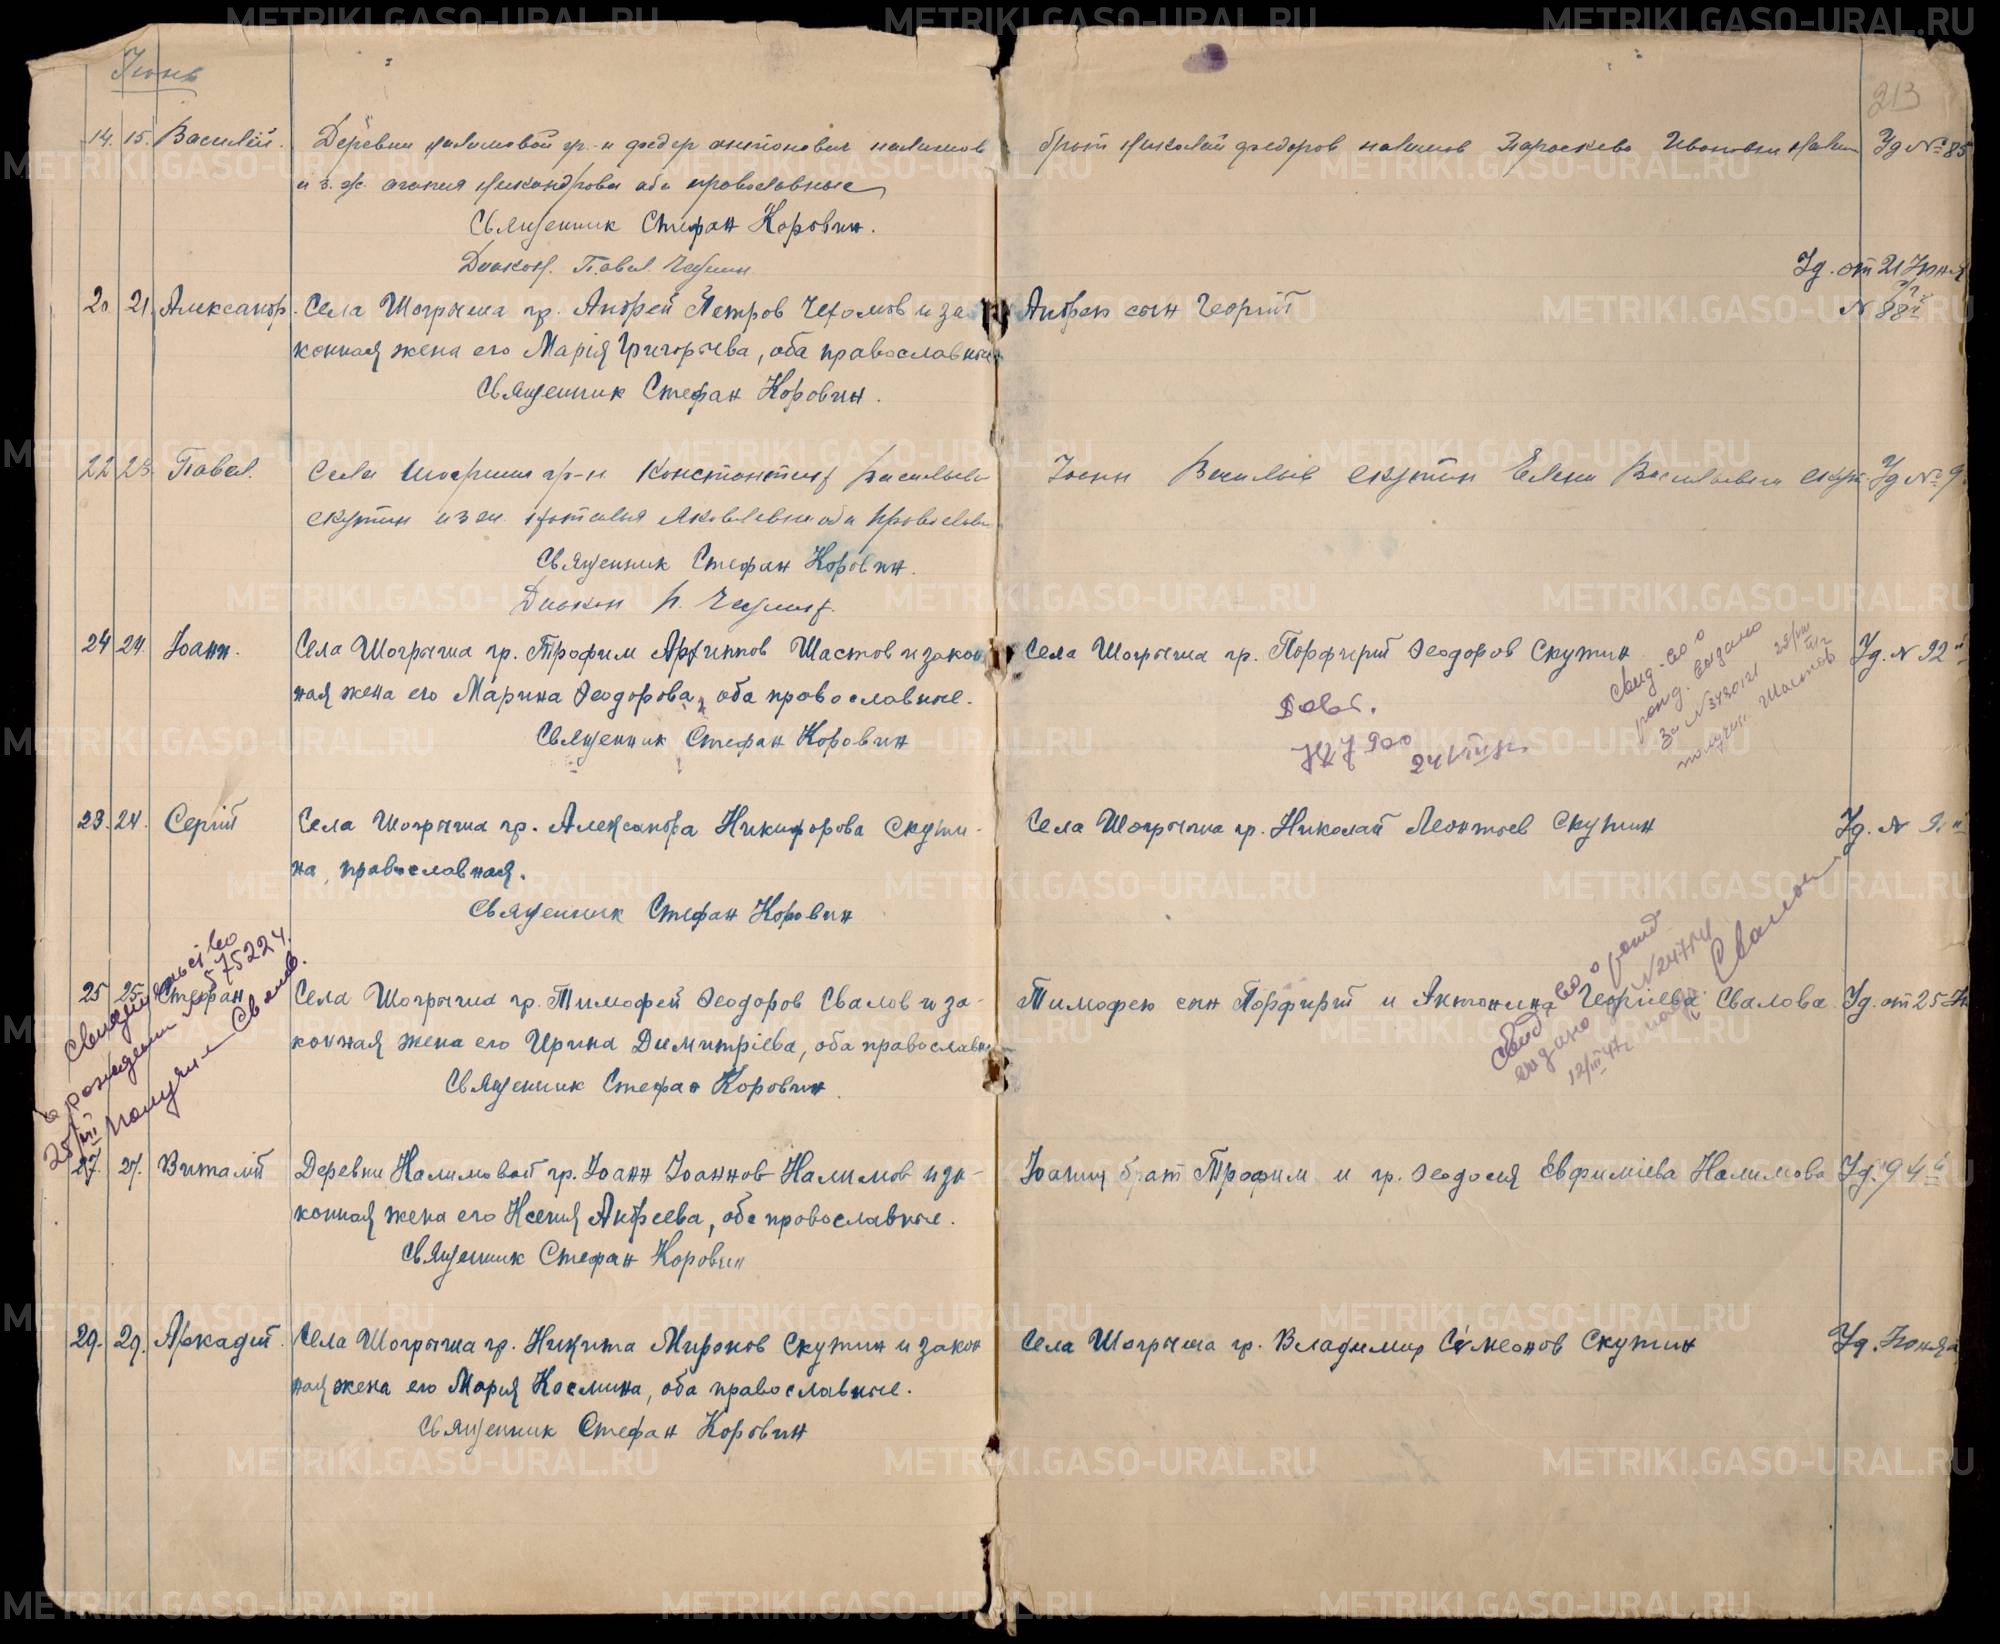 METRIKI.GASO-URAL.RU
Июнь
213
14. 15. Василій. Деревни Налимовой гр-н Федор Антонович Налимов
и з. ж. Агапия Никандрова оба православные
брат Николай Федоров Налимов Параскева Ивановна
Уд № 85
Священник Стефан Коровин.
Диакон. Павел
Уд. от 21 Июня
20 21. Александр. Села Шогрыша гр. Андрей Петров Чехомов и за
конная жена его Марія Григорьева, оба православные
Священник Стефан Коровин.
Андрея сын Георгій
№ 88й
22 23. Павел. Села Шогриша гр-н Константин Васильев
Скутин и з ж. Наталья Яковлевна оба православн
Иоанн Васильев Скутин Елена Васильевна Скут
Уд № 9
Священник Стефан Коровин.
Диакон П.
24 24. Іоанн. Села Шогрыша гр. Трофим Архиппов Шастов и закон
ная жена его Марина Феодорова, оба православные.
Священник Стефан Коровин
Села Шогрыша гр. Порфирій Феодоров Скутин
Уд. № 92й
Свид-во о
рожд. выдано
за № 3480121
получил Шастов
23. 24. Сергій Села Шогрыша гр. Александра Никифорова Скути-
на, православная.
Священник Стефан Коровин
Села Шогрыша гр. Николай Леонтьев Скутин
Уд. №
25 25. Стефан Села Шогрыша гр. Тимофей Феодоров Свалов и за-
конная жена его Ирина Димитріева, оба православн
Священник Стефан Коровин
Тимофею сын Порфирій и Антонина Георгіева Свалова
Уд. от 25
Свидетельство
о рождении № 575224.
25/VII получил Свалов.
Свид-во о рожд
выдано № 24754
12/III 47г
27. 27. Виталій Деревни Налимовой гр. Іоанн Іоаннов Налимов и за-
конная жена его Ксения Андреева, оба православные.
Священник Стефан Коровин
Іоанну брат Трофим и гр. Феодосия Евфиміева Налимова
Уд. 94й
29. 29. Аркадій. Села Шогрыша гр. Никита Миронов Скутин и закон
ная жена его Мария Космина, оба православные.
Священник Стефан Коровин
Села Шогрыша гр. Владимир Симеонов Скутин
Уд. Июня